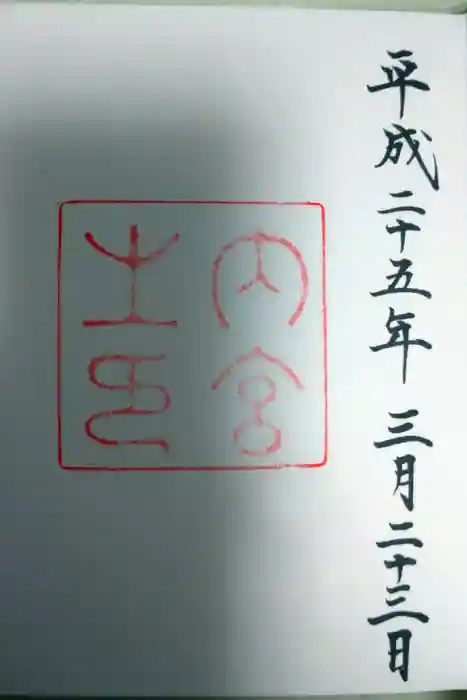 平成二十五年三月二十三日
内宮
之印